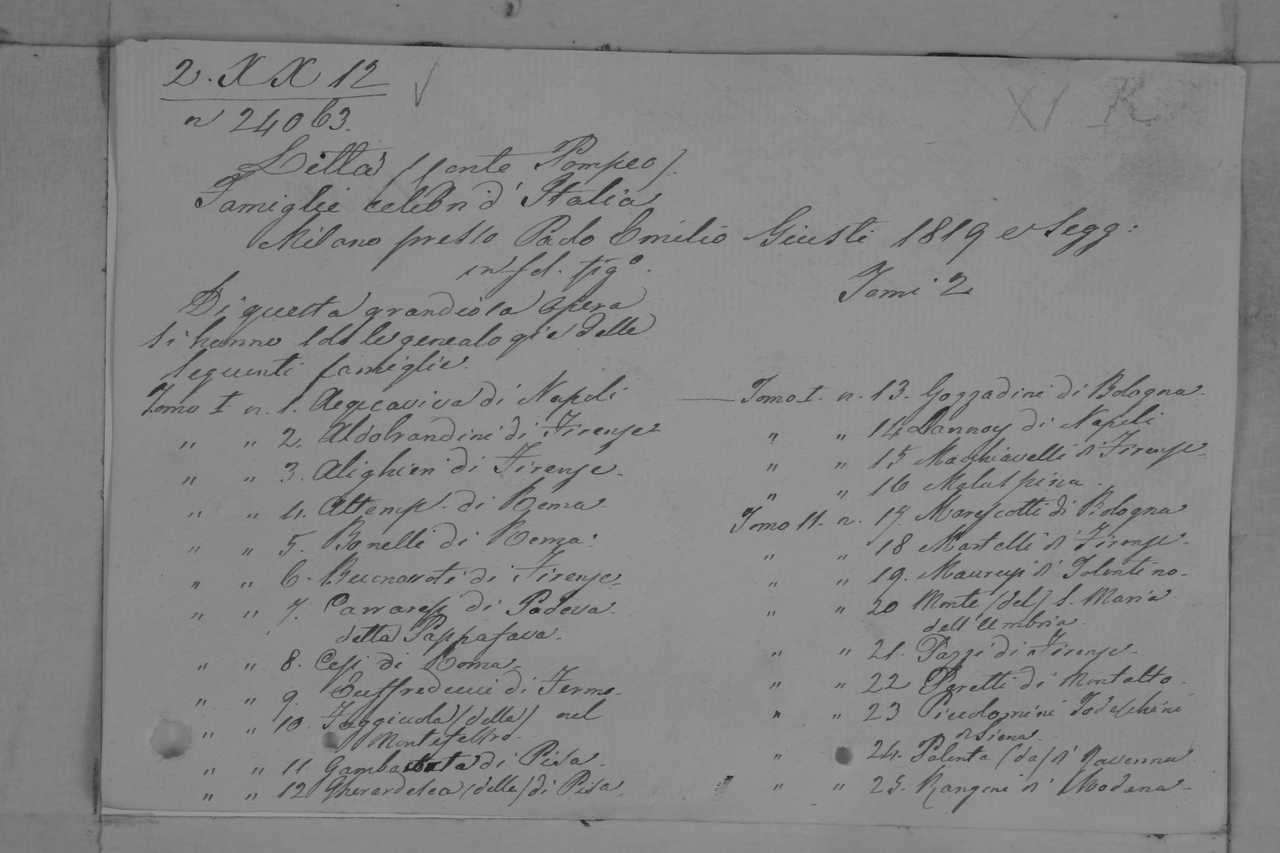 2. XX 12
n 24063.
XI K
Litta (Conte Pompeo).
Famiglie celebri d'Italia
Milano presso Paolo Emilio Giusti 1819 e segg:
in fol. fig°.
Tomi 2
Di questa grandiosa opera
si hanno le genealogie delle
seguenti famiglie.
Tomo I n. 1. Acquaviva di Napoli
" " 2. Aldobrandini di Firenze
" " 3. Alighieri di Firenze.
" " 4. Altemps. di Roma.
" " 5. Bonelli di Roma.
" " 6. Buonarroti di Firenze.
" " 7. Carraresi di Padova
detta Pappafava.
" " 8. Cesi di Roma
" " 9. Euffreducci di Fermo.
" " 10. Faggiuola (della) nel
Montefeltro.
" " 11 Gambacorta di Pisa.
" " 12 Gherardesca (della) di Pisa.
Tomo I. n. 13. Gozzadini di Bologna.
" " 14 Lannoy di Napoli
" " 15 Machiavelli di Firenze.
" " 16 Malaspina.
Tomo II. n. 17. Marescotti di Bologna
" " 18 Martelli di Firenze.
" " 19. Mauruzi di Tolentino.
" " 20 Monte (del) S. Maria
dell'Umbria.
" " 21. Pazzi di Firenze.
" " 22 Peretti di Montalto.
" " 23 Piccolomini Todeschini
di Siena.
" " 24. Polenta (da) di Ravenna
" " 25. Rangoni di Modena.